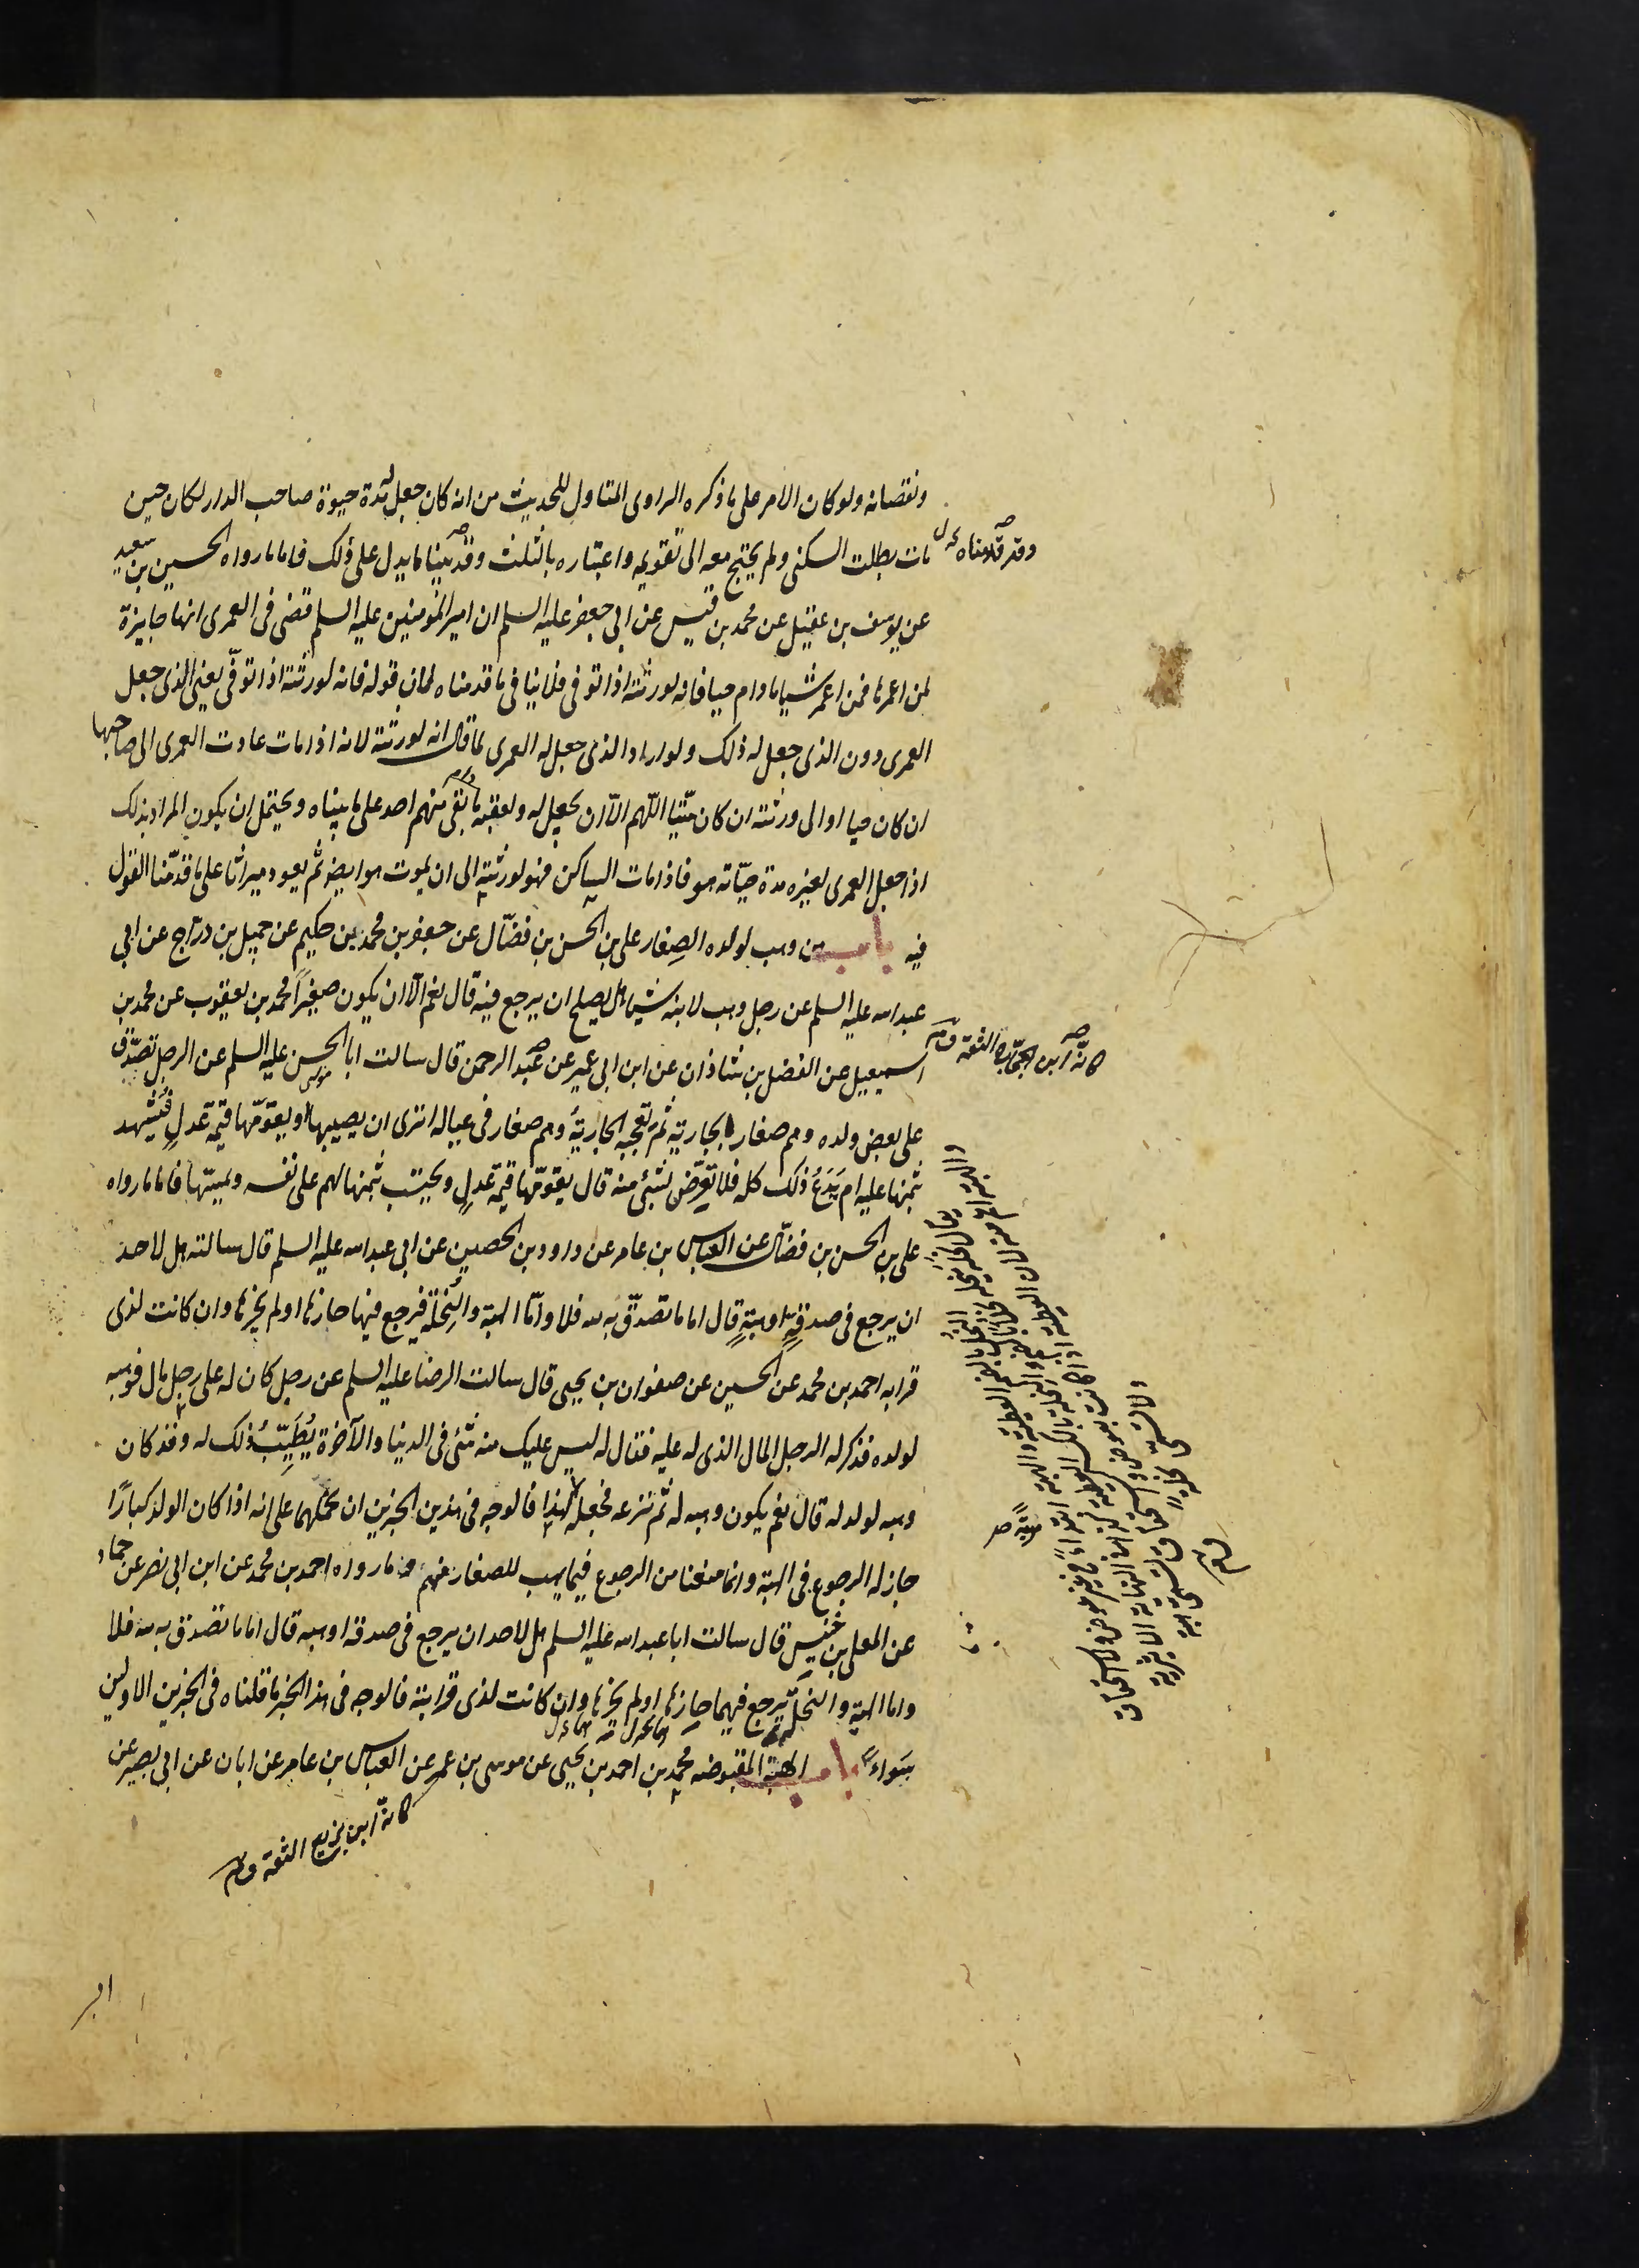 ونقصانه ولو كان الامر على ما ذكره الراوى المتاول للحديث من انه كان جعل لمدة حيوة صاحب الدار لكان حين
مات بطلت السكنى ولم يحتج معه الى تقويمه واعتباره بالثلث وقد بينا ما يدل على ذلك فاما ما رواه الحسين بن سعيد
عن يوسف بن عقيل عن محمد بن قيس عن ابى جعفر عليه السلم ان امير المؤمنين عليه السلم قضى فى العمرى انها جايزة
لمن اعمرها فمن اعمر شيا ما دام حيا فانه لورثته اذا توفى فلا ينافى ما قدمناه لان قوله فانه لورثته اذا توفى يعنى الذى جعل
العمرى دون الذى جعل له ذلك ولو اراد الذى جعل له العمرى لما قال انه لورثته لانه اذا مات عادت العمرى الى صاحبها
ان كان حيا او الى ورثته ان كان ميتا اللهم الا ان يجعل له ولعقبه ما بقى منهم احد على ما بيناه ويحتمل ان يكون المراد بذلك
اذا جعل العمرى لغيره مدة حياته هو فاذا مات الساكن فهو لورثته الى ان يموت هو ايضا ثم يعود ميراثا على ما قدمنا القول
فيه باب من وهب لولده الصغار على بن الحسن بن فضال عن جعفر بن محمد بن حكيم عن جميل بن دراج عن ابى
عبد الله عليه السلم عن رجل وهب لابنه شيا هل يصلح ان يرجع فيه قال نعم الا ان يكون صغيرا محمد بن يعقوب عن محمد بن
اسمعيل عن الفضل بن شاذان عن ابن ابى عمير عن عبد الرحمن قال سالت ابا الحسن عليه السلم عن الرجل تصدق
على بعض ولده وهم صغار بالجارية ثم تعجبه الجارية وهم صغار فى عياله اترى ان يصيبها او يقومها قيمة عدل فيشهد
بثمنها عليه ام يدع ذلك كله فلا تعرض لشئ منه قال يقومها قيمة عدل ويحتسب بثمنها لهم على نفسه ويمسها فاما ما رواه
على بن الحسن بن فضال عن العباس بن عامر عن داود بن الحصين عن ابى عبد الله عليه السلم قال سالته هل لاحد
ان يرجع فى صدقة او هبة قال اما ما تصدق به لله فلا واما الهبة والنحلة فيرجع فيها حازها او لم يحزها وان كانت لذى
قرابه احمد بن محمد عن الحسين عن صفوان بن يحيى قال سالت الرضا عليه السلم عن رجل كان له على رجل مال فوهبه
لولده فذكر له الرجل المال الذى له عليه فقال له ليس عليك منه شئ فى الدنيا والآخرة يطيب ذلك له وقد كان
وهبه لولد له قال نعم يكون وهبه له ثم نزعه فجعله لهذا فالوجه فى هذين الخبرين ان نحملهما على انه اذا كان الولد كبارا
جاز له الرجوع فى الهبة وانما منعنا من الرجوع فيما يهب للصغار منهم وما رواه احمد بن محمد عن ابن ابى نصر عن حماد
عن المعلى بن خنيس قال سالت ابا عبد الله عليه السلم هل لاحد ان يرجع فى صدقة او هبه قال اما ما تصدق به لله فلا
واما الهبة والنحلة يرجع فيهما حازها او لم يحزها وان كانت لذى قرابة فالوجه فى هذا الخبر ما قلناه فى الخبرين الاولين
سواء باب الهبة المقبوضه محمد بن احمد بن يحيى عن موسى بن عمر عن العباس بن عامر عن ابان عن ابى بصير عن
وقد قدمناه
كانه ابن الحجاج الثقة
كانه ابن بزيع الثقة